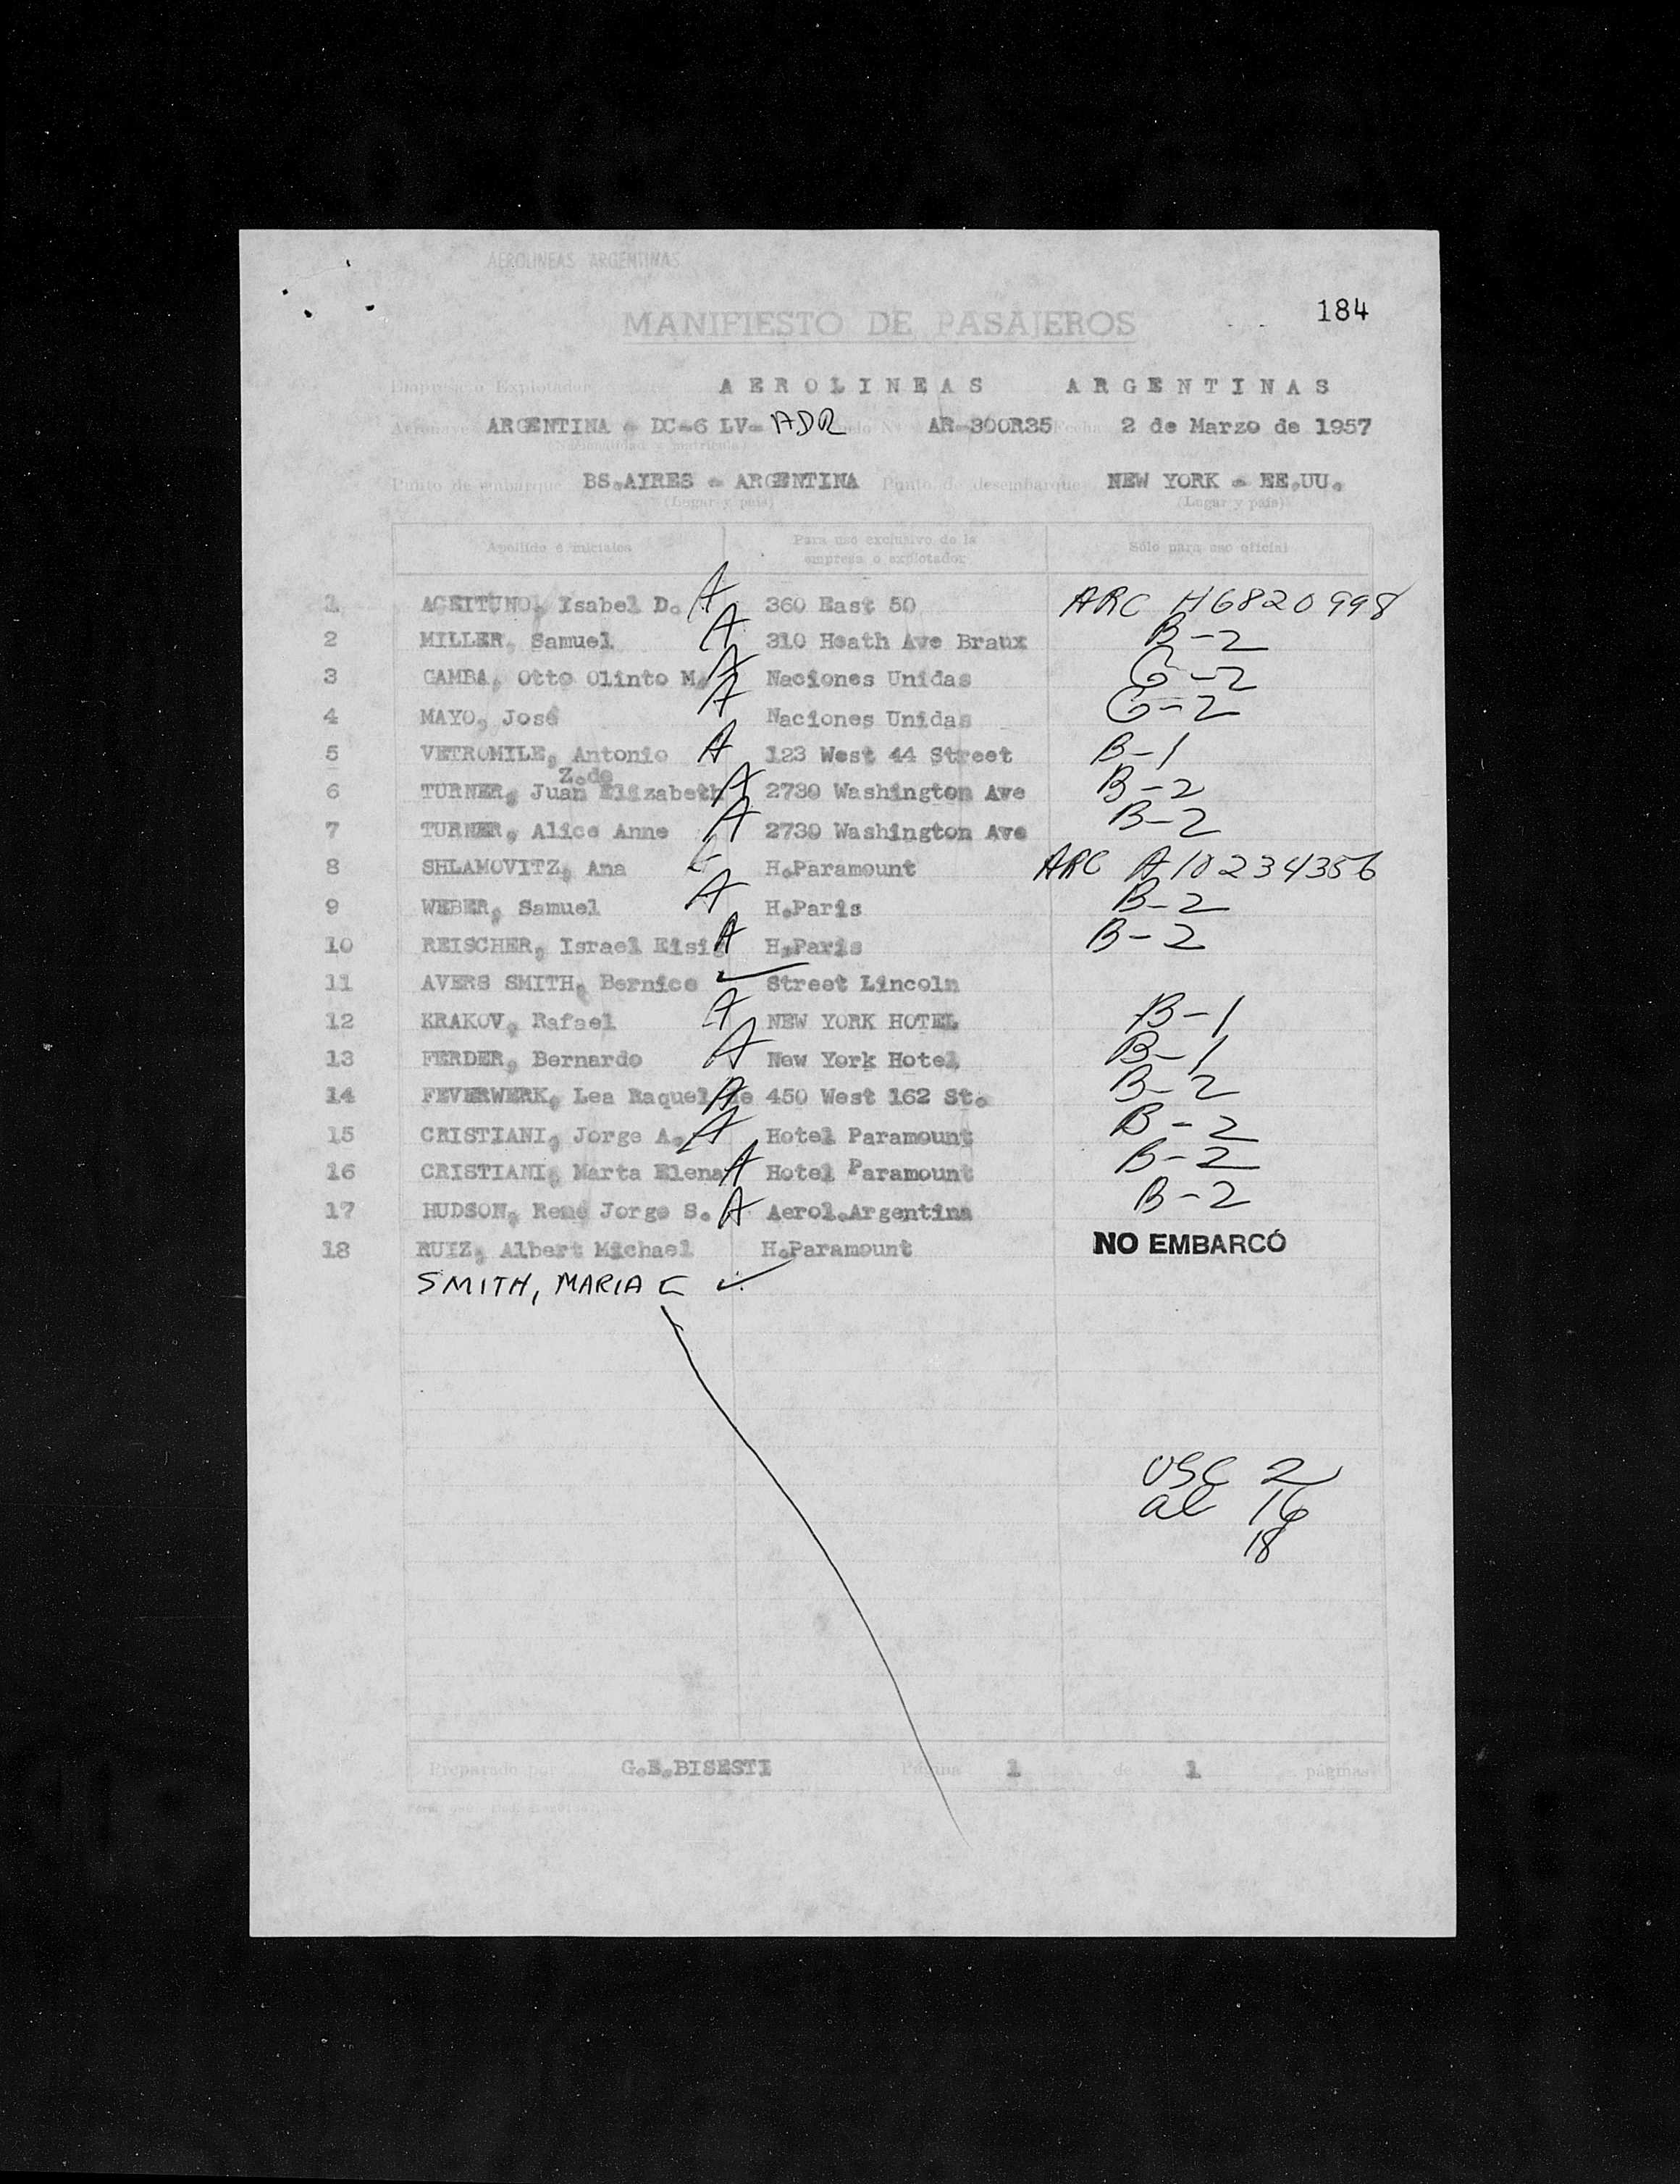 AEROLINEAS ARGENTINAS
184
MANIFIESTO DE PASAJEROS
Empresa o Explotador AEROLINEAS ARGENTINAS
Aeronave ARGENTINA - DC-6 LV- ADR AR-300R35 Fecha 2 de Marzo de 1957
(Nacionalidad y matrícula)
Punto de embarque BS.AIRES - ARGENTINA Punto de desembarque NEW YORK - EE.UU.
(Lugar y país) (Lugar y país)
Apellido e iniciales Para uso exclusivo de la empresa o explotador Sólo para uso oficial
1 ACEITUNO, Isabel D. A 360 East 50 ARC H6820998
2 MILLER, Samuel A 310 Heath Ave Braux B-2
3 CAMBA, Otto Olinto M. A Naciones Unidas G-2
4 MAYO, José A Naciones Unidas G-2
5 VETROMILE, Antonio A 123 West 44 Street B-1
Z.de
6 TURNER, Juan Elizabeth A 2730 Washington Ave B-2
7 TURNER, Alice Anne A 2730 Washington Ave B-2
8 SHLAMOVITZ, Ana H.Paramount ARC A10234356
9 WEBER, Samuel A H.Paris B-2
10 REISCHER, Israel Eisi A H.Paris B-2
11 AVERS SMITH, Bernice ✓ Street Lincoln
12 KRAKOV, Rafael A NEW YORK HOTEL B-1
13 FERDER, Bernardo A New York Hotel B-1
14 FEVERWERK, Lea Raquel de A 450 West 162 St. B-2
15 CRISTIANI, Jorge A. A Hotel Paramount B-2
16 CRISTIANI, Marta Elena A Hotel Paramount B-2
17 HUDSON, René Jorge S. A Aerol.Argentina B-2
18 RUIZ, Albert Michael H.Paramount NO EMBARCÓ
SMITH, MARIA C ✓
USC 2
al 16
18
Preparado por G.E.BISESTI Página 1 de 1 páginas